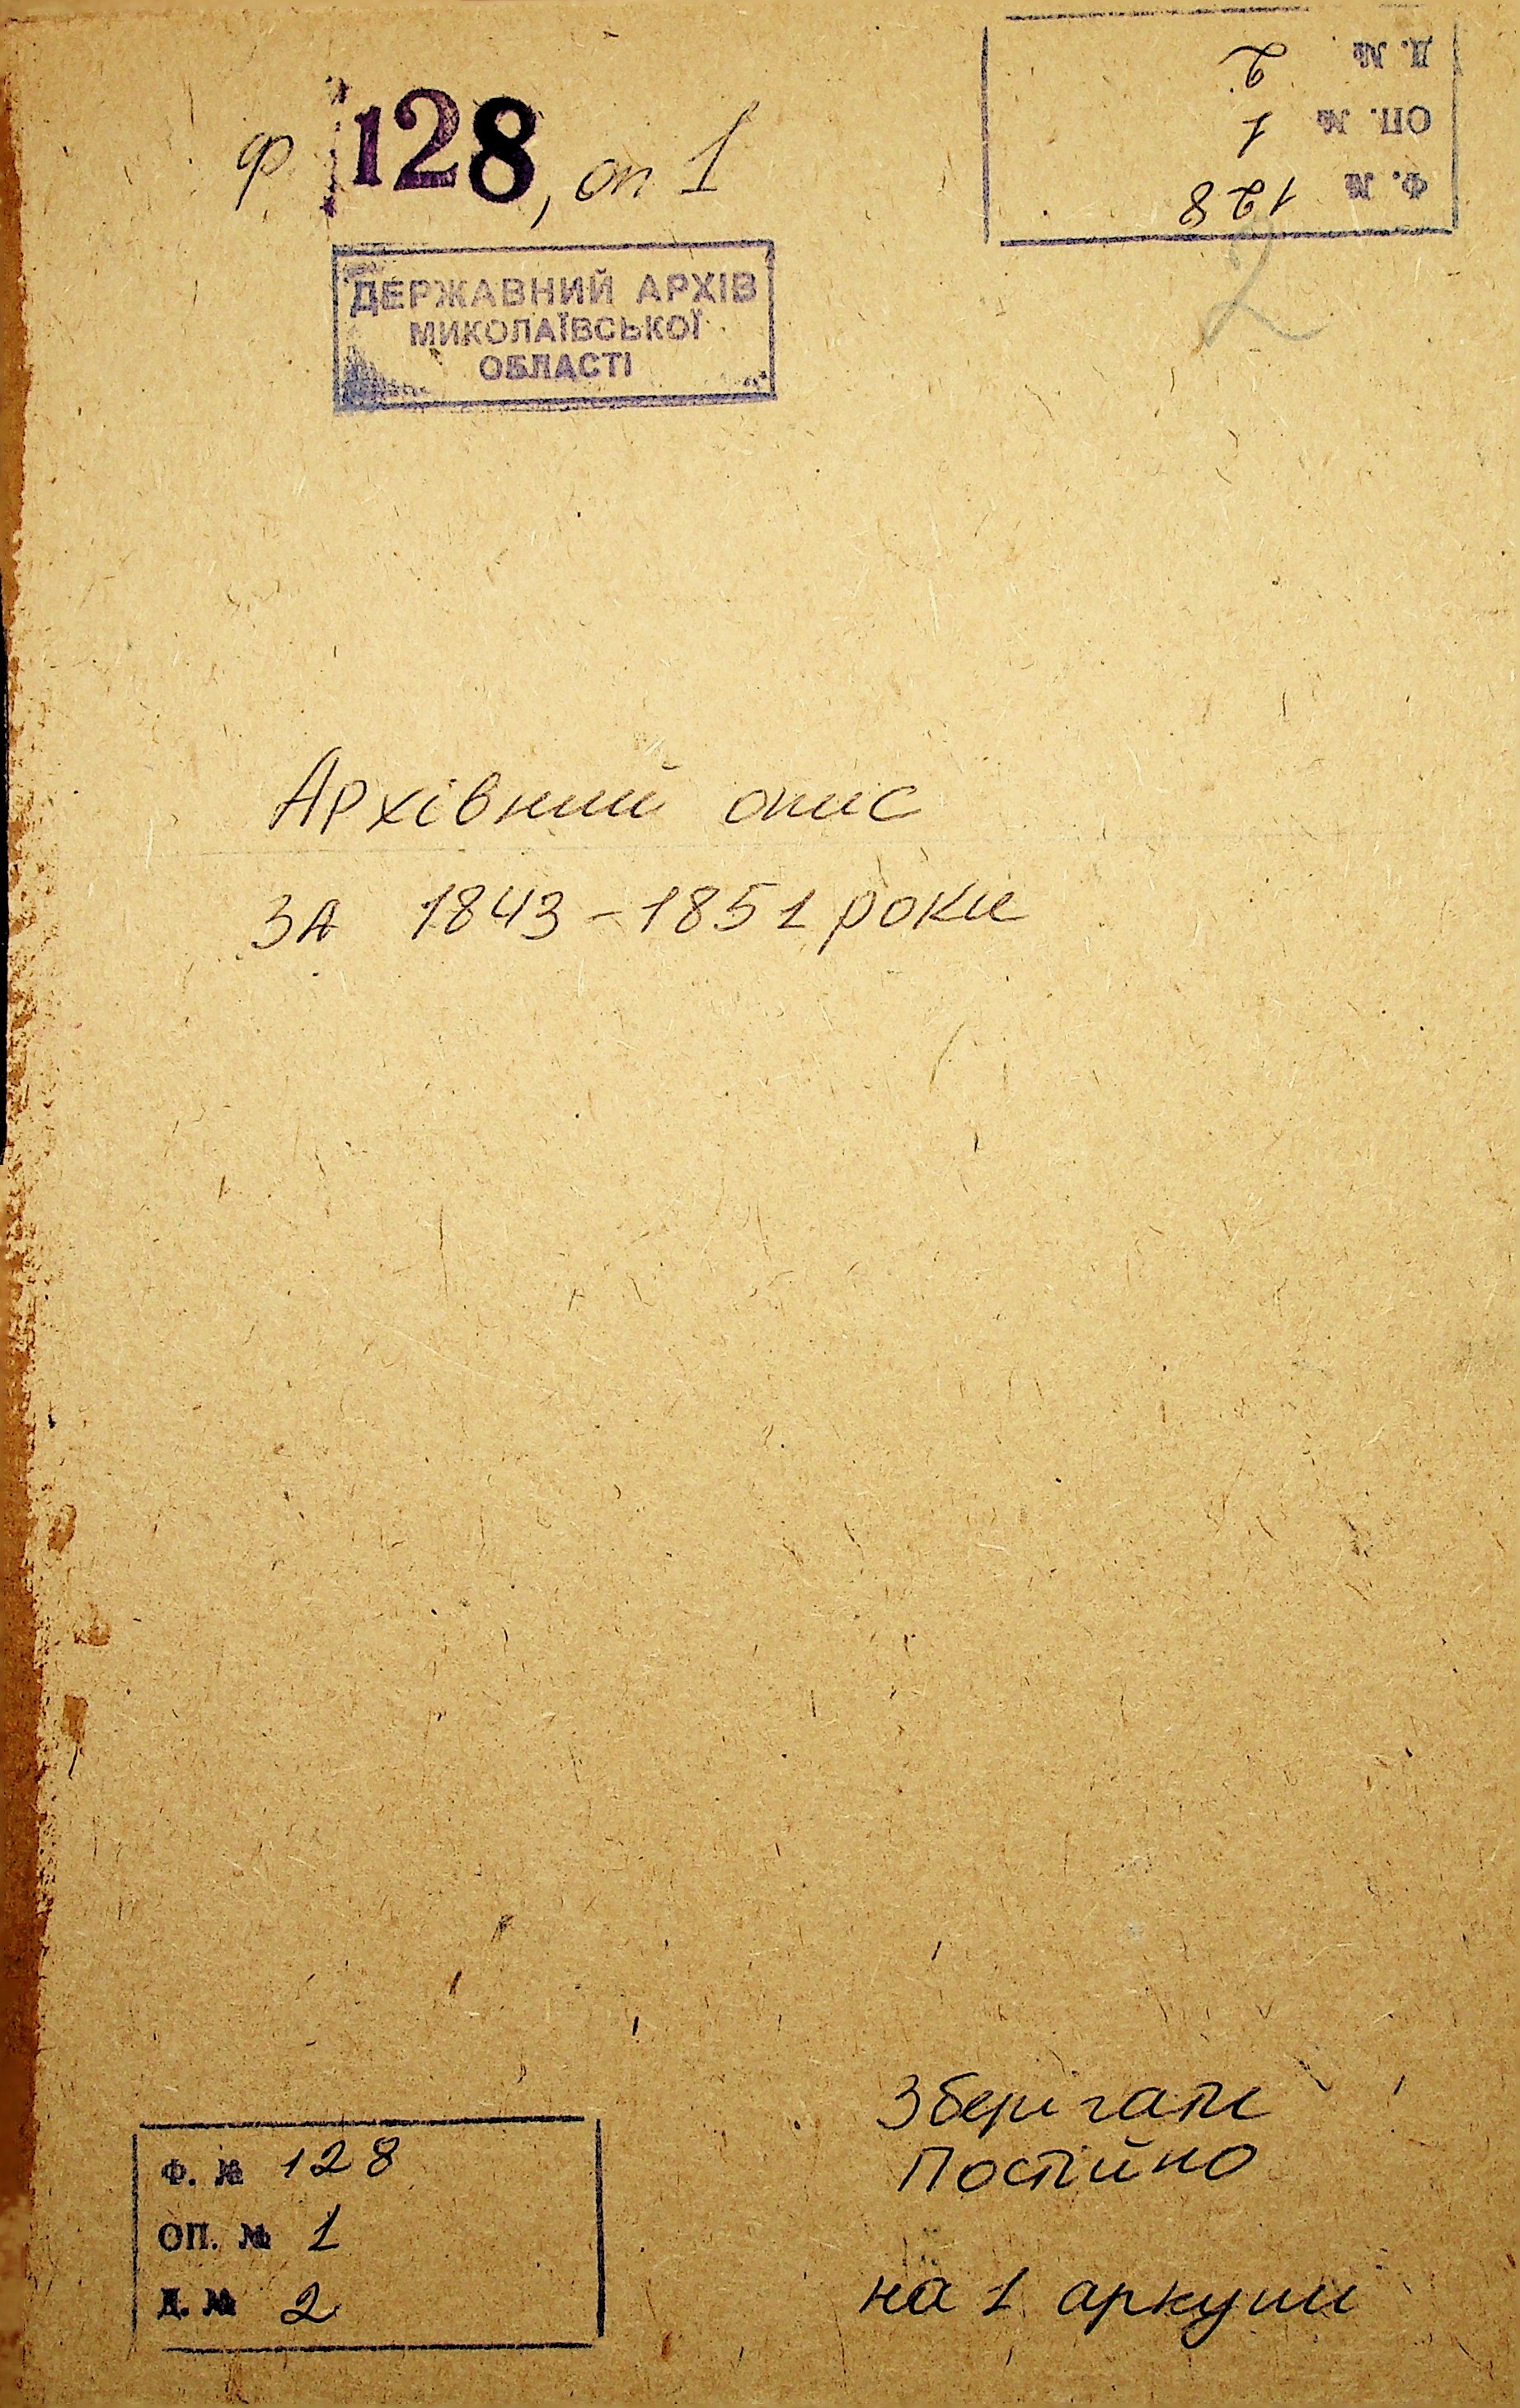 Ф. 128, оп 1
Д. № 2
ОП. № 1
Ф. № 128
2
ДЕРЖАВНИЙ АРХІВ
МИКОЛАЇВСЬКОЇ
ОБЛАСТІ
Архівний опис
за 1843-1851 роки
Зберігати
Постійно
на 1 аркуши
Ф. № 128
ОП. № 1
Д. № 2